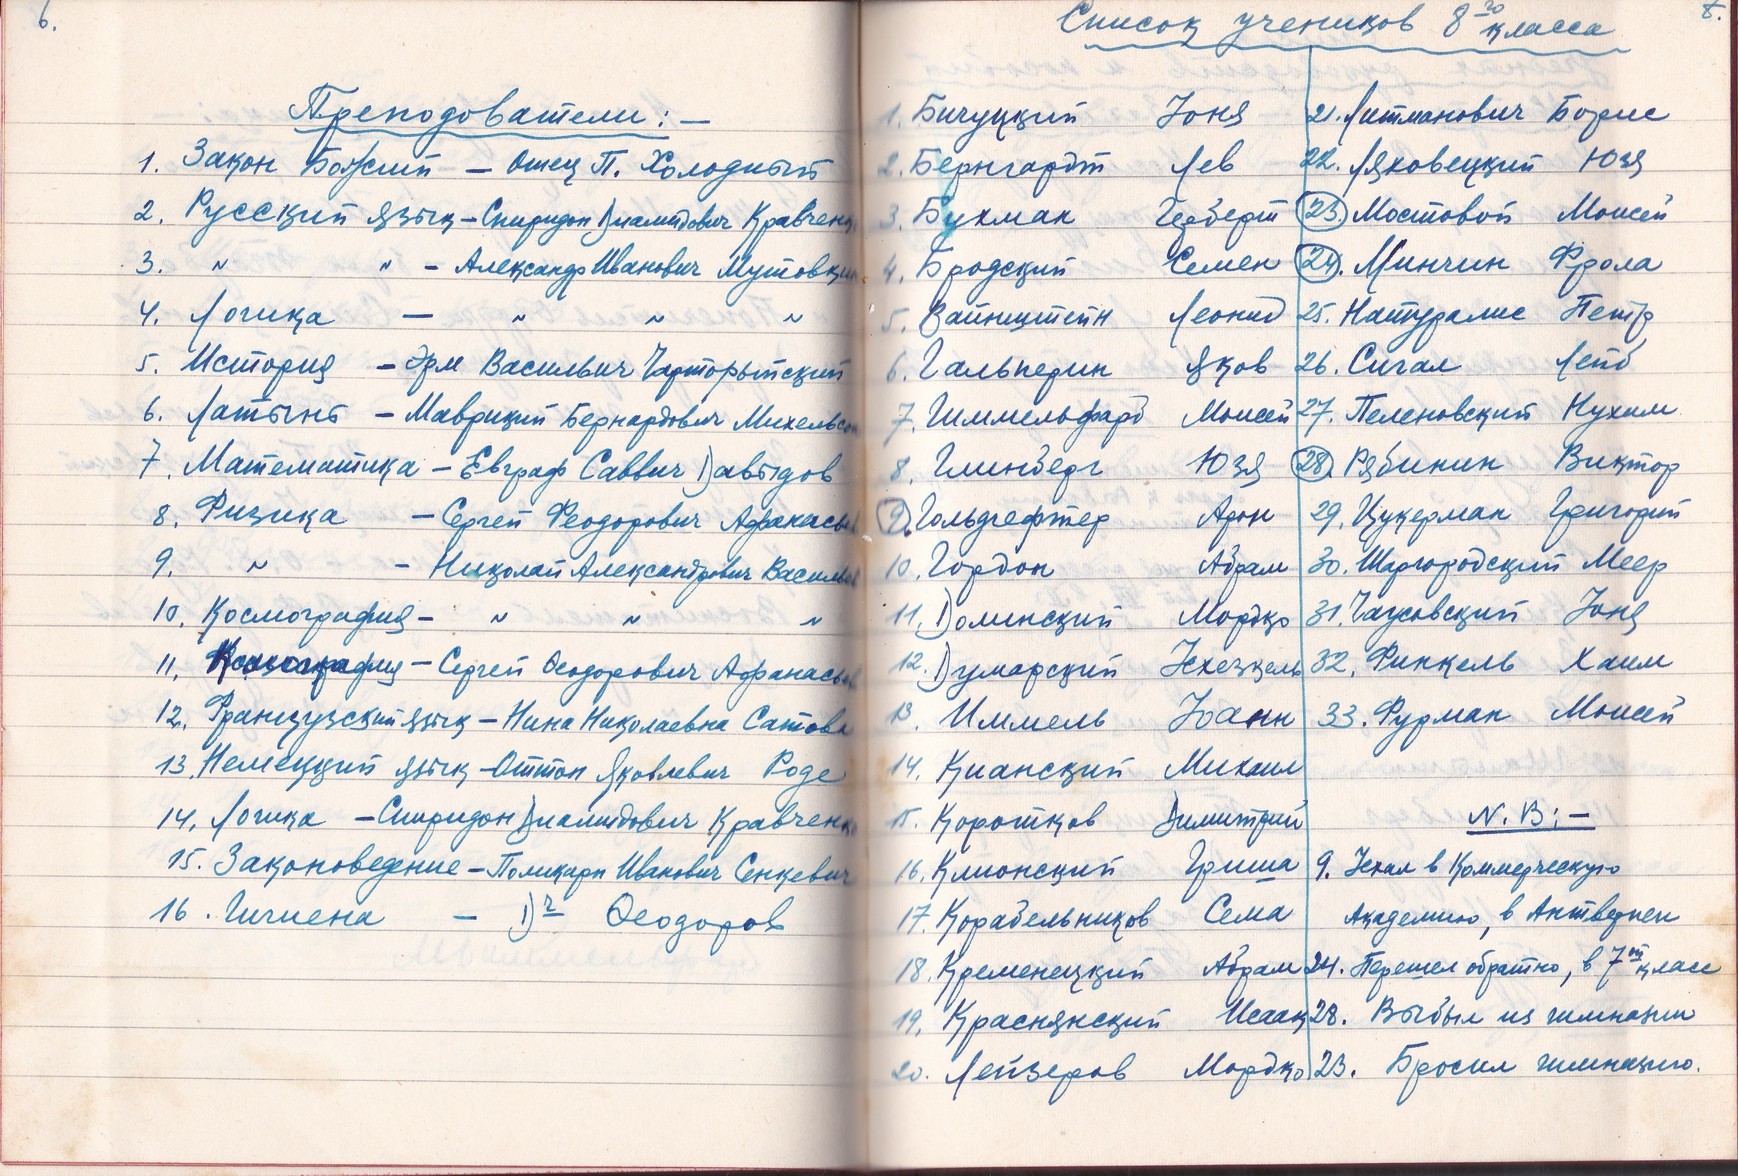 6.
Преподователи: —
1. Закон Божий — Отец П. Холодный
2. Русский язык — Спиридон Диамидович Кравченко
3. " " — Александр Иванович Мутовкин
4. Логика — " " "
5. История — Эрм Васильвич Чарторыйский
6. Латынь — Маврикий Бернардович Михельсон
7. Математика — Евграф Саввич Давыдов
8. Физика — Сергей Феодорович Афанасьев
9. " — Николай Александрович Васильев
10. Космография — " " "
11. — Сергей Феодорович Афанасьев
12. Французский язык — Нина Николаевна Сатова
13. Немецкий язык — Оттон Яковлевич Роде
14. Логика — Спиридон Диамидович Кравченко
15. Законоведение — Поликарп Иванович Сенкевич
16. Гигиена — Д-ч Феодоров
8.
Список учеников 8го класса
1. Бичуцкий Іоня
2. Бернгардт Лев
3. Бухман Герберт
4. Бродский Семен
5. Вайнштейн Леонид
6. Гальперин Яков
7. Гиммельфарб Моисей
8. Глинберг Юзя
9. Гольдгефтер Арон
10. Гордон Абрам
11. Долинский Мордко
12. Думарский Іехезкель
13. Иммель Іоанн
14. Кианский Михаил
15. Коротков Димитрий
16. Клионский Гриша
17. Корабельников Сема
18. Кременецкий Абрам
19. Краснянский Исаак
20. Лейзеров Мордко
21. Литманович Борис
22. Ляховецкий Юзя
23. Мостовой Моисей
24. Минчин Фрола
25. Натуралис Петр
26. Сигал Лейб
27. Пеленовский Нухим
28. Рябинин Виктор
29. Цукерман Григорий
30. Шаргородский Меер
31. Чаусовский Іоня
32. Финкель Хаим
33. Фурман Моисей
N.B: —
9. Уехал в Коммерческую
Академию, в Антверпен
24. Перешел обратно, в 7й класс
28. Выбыл из гимназии
23. Бросил гимназию.